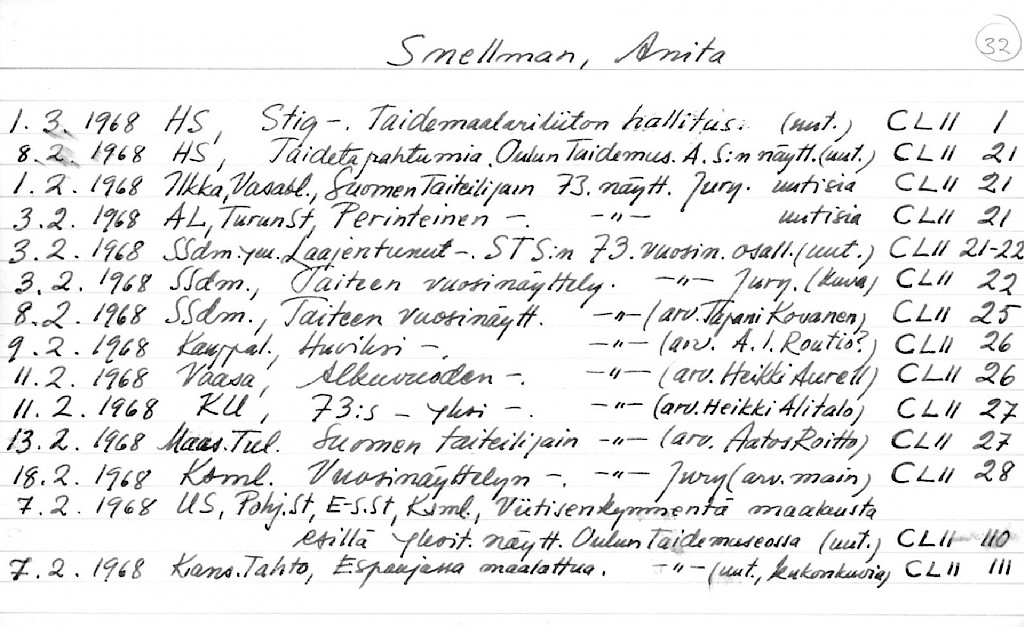 32
Snellman, Anita
1.3.1968 HS, Stig -. Taidemaalariliiton hallitus. (uut.) CLII 1
8.2.1968 HS, Taidetapahtumia, Oulun Taidemus. A.S:n näytt. (uut.) CLII 21
1.2.1968 Ilkka, Vasabl., Suomen Taiteilijain 73. näytt. Jury. uutisia CLII 21
3.2.1968 AL, TurunSt, Perinteinen -. -"- uutisia CLII 21
3.2.1968 SSdm. ym. Laajentunut -. STS:n 73. vuosin. osall. (uut.) CLII 21-22
3.2.1968 SSdm., Taiteen vuosinäyttely. -"- Jury. (kuva) CLII 22
8.2.1968 SSdm., Taiteen vuosinäytt. -"- (arv. Tapani Kovanen) CLII 25
9.2.1968 Kauppal., Huviksi -. -"- (arv. A.I. Routio?) CLII 26
11.2.1968 Vaasa, Alkuvuoden -. -"- (arv. Heikki Aurell) CLII 26
11.2.1968 KU, 73:s - yksi -. -"- (arv. Heikki Alitalo) CLII 27
13.2.1968 Maas.Tul. Suomen taiteilijain -"- (arv. Aatos Roitto) CLII 27
18.2.1968 Ksml. Vuosinäyttelyn -. -"- Jury (arv. main) CLII 28
7.2.1968 US, Pohj.St, E-S.St, Ksml., Viitisenkymmentä maalausta
esillä yksit. näytt. Oulun Taidemuseossa (uut.) CLII 110
7.2.1968 Kans.Tahto, Espanjassa maalattua. -"- (uut., kukonkuvia) CLII 111